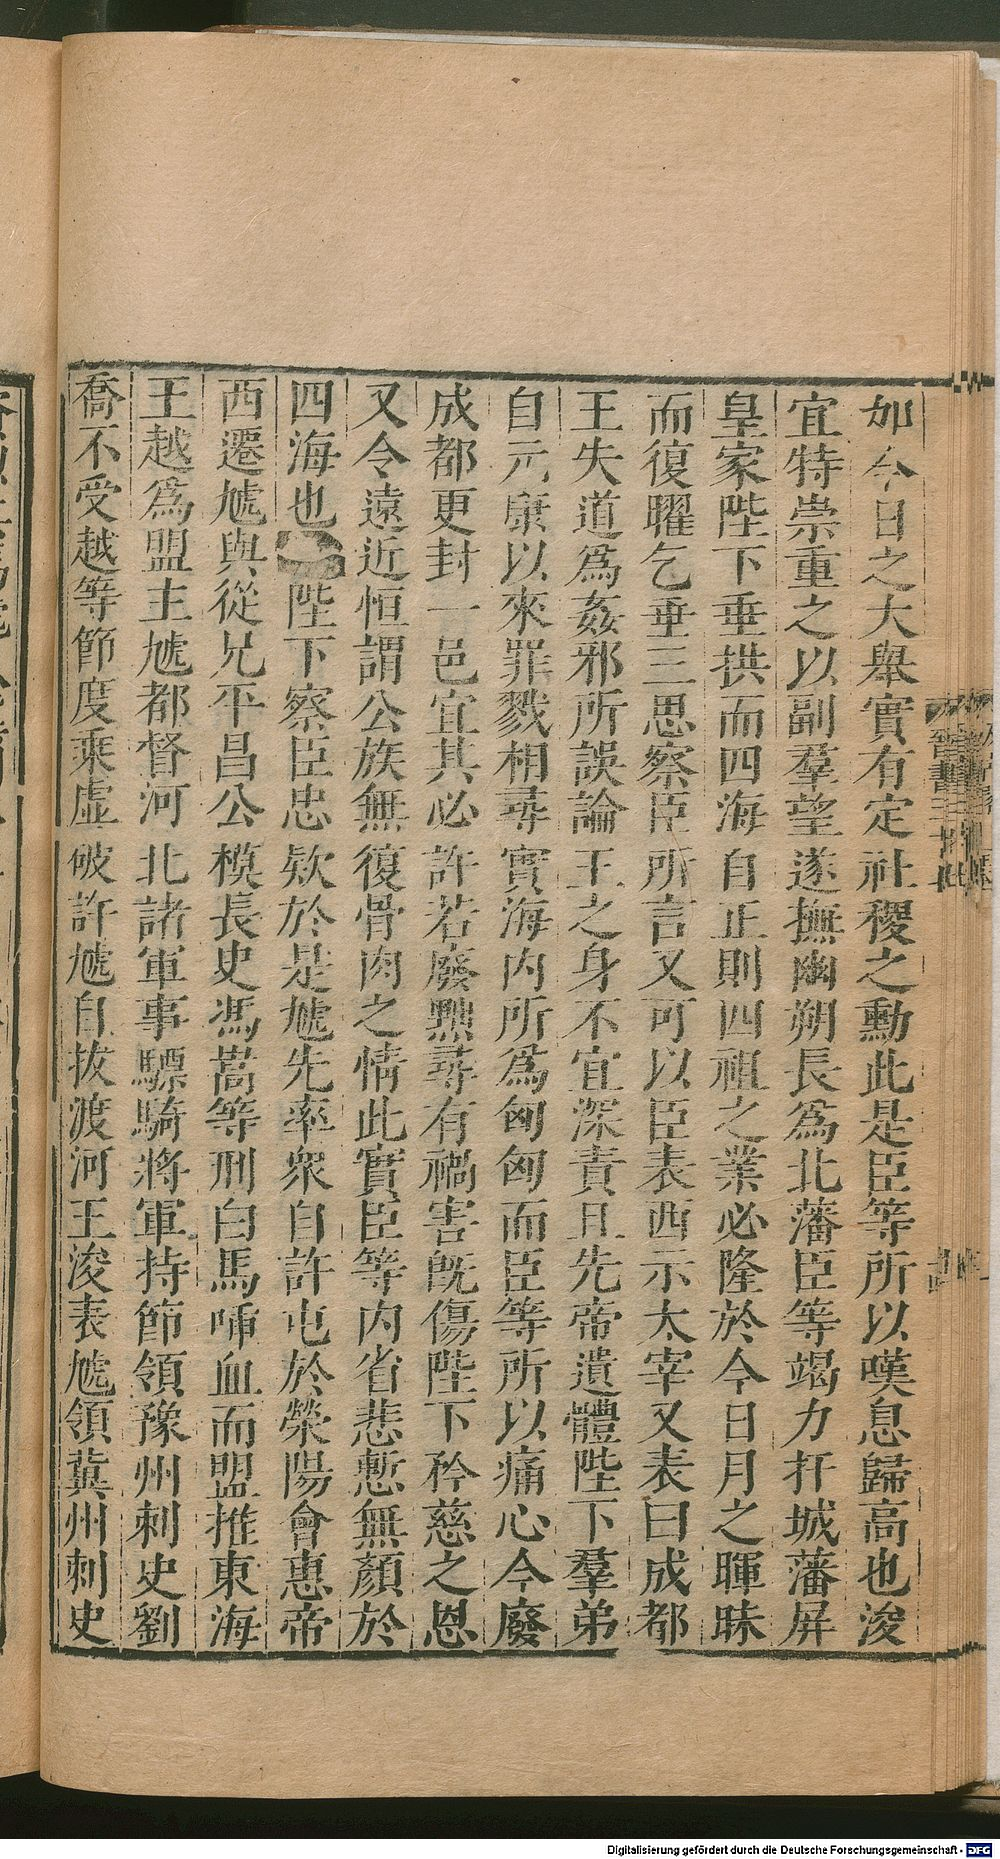 如今日之大舉實有定社稷之勳此是臣等所以嘆息歸高也浚
宜特崇重之以副羣望遂撫幽朔長爲北藩臣等竭力扞城藩屏
皇家陛下垂拱而四海自正則四祖之業必隆於今日月之暉昧
而復曜乞垂三思察臣所言又可以臣表西示太宰又表曰成都
王失道爲姦邪所誤論王之身不宜深責且先帝遺體陛下羣弟
自元康以來罪戮相尋實海内所爲匈匈而臣等所以痛心今廢
成都更封一邑宜其必許若廢黜尋有禍害旣傷陛下矜慈之恩
又令遠近恒謂公族無復骨肉之情此實臣等内省悲慙無顏於
四海也陛下察臣忠欵於是虓先率衆自許屯於滎陽會惠帝
西遷虓與從兄平昌公模長史馮嵩等刑白馬喢血而盟推東海
王越爲盟主虓都督河北諸軍事驃騎將軍持節領豫州刺史劉
喬不受越等節度乘虛破許虓自拔渡河王浚表虓領冀州刺史
Digitalisierung gefördert durch die Deutsche Forschungsgemeinschaft - DFG